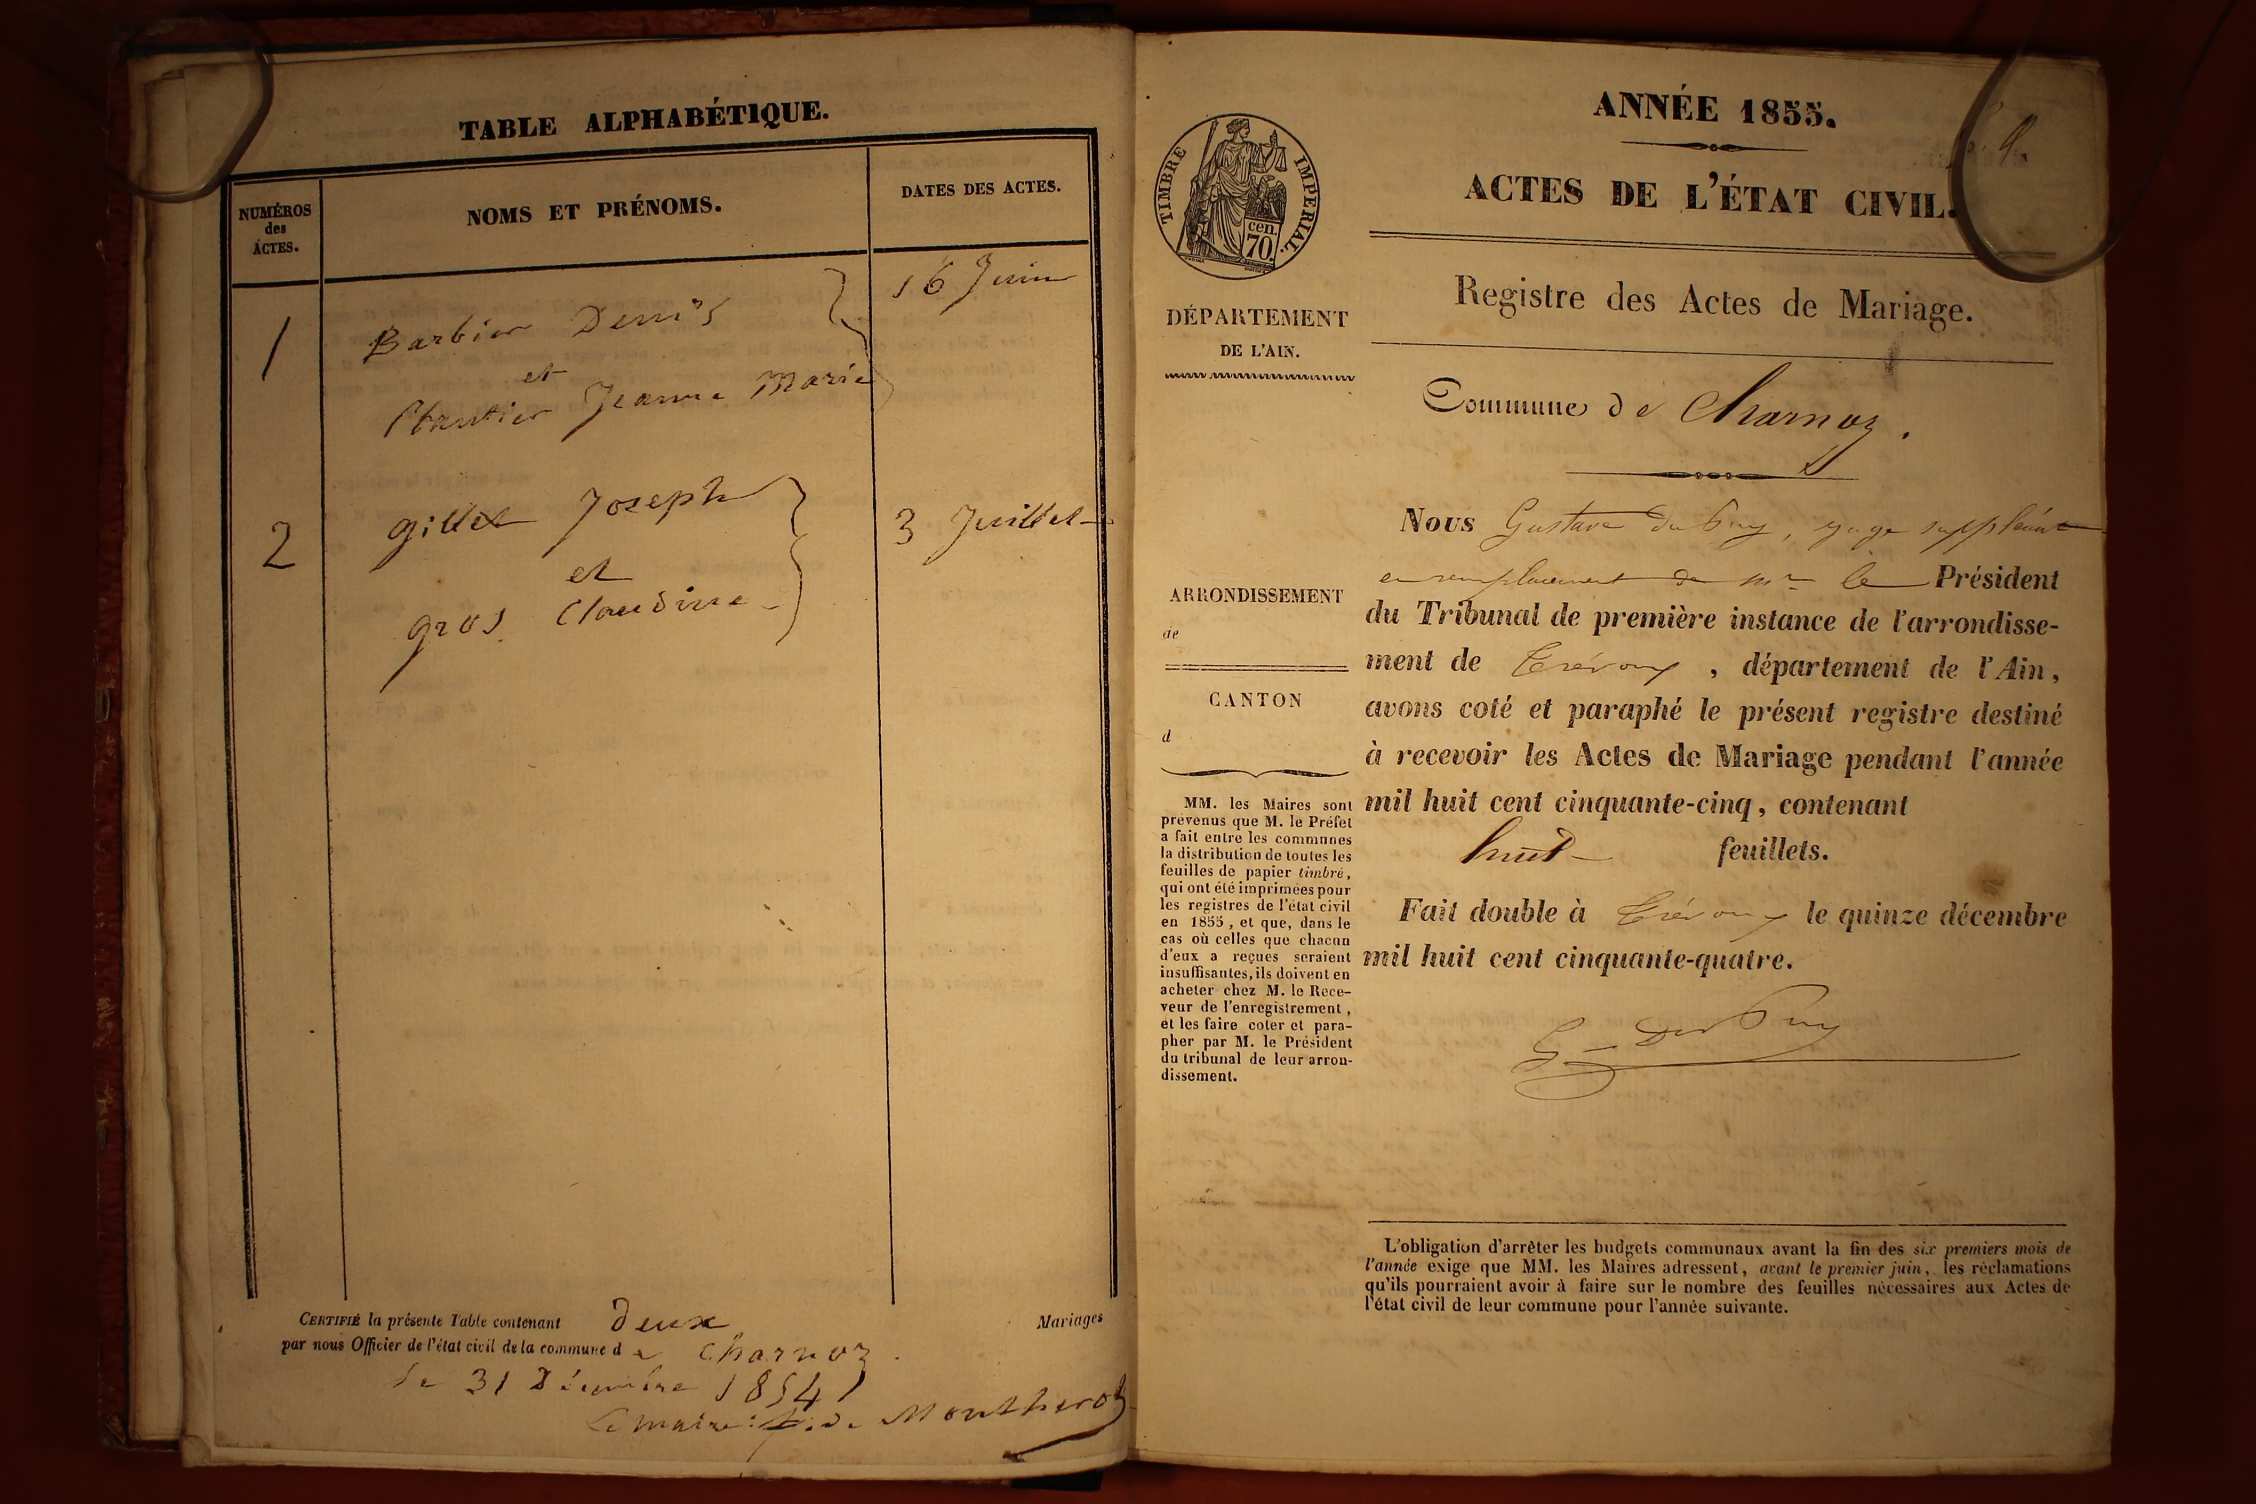 TABLE ALPHABÉTIQUE.
NUMÉROS
des
ACTES.
NOMS ET PRÉNOMS.
DATES DES ACTES.
1
Barbier Denis
et
Jeanne Marie
16 Juin
2
gillet Joseph
et
gros Claudine
3 Juillet
CERTIFIÉ la présente Table contenant deux Mariages
par nous Officier de l'état civil de la commune de Charnoz.
le 31 Décembre 1854
Le maire: de Montherot
ANNÉE 1855.
ACTES DE L'ÉTAT CIVIL.
Registre des Actes de Mariage.
TIMBRE IMPERIAL.
cen.
70.
DÉPARTEMENT
DE L'AIN.
Commune de Charnoz.
ARRONDISSEMENT
de
CANTON
d
MM. les Maires sont
prévenus que M. le Préfet
a fait entre les communes
la distribution de toutes les
feuilles de papier timbré,
qui ont été imprimées pour
les registres de l'état civil
en 1855, et que, dans le
cas où celles que chacun
d'eux a reçues seraient
insuffisantes, ils doivent en
acheter chez M. le Rece-
veur de l'enregistrement,
et les faire coter et para-
pher par M. le Président
du tribunal de leur arron-
dissement.
Nous Gustave DuPuy, juge suppléant
en remplacement de Mr le Président
du Tribunal de première instance de l'arrondisse-
ment de Trévoux, département de l'Ain,
avons coté et paraphé le présent registre destiné
à recevoir les Actes de Mariage pendant l'année
mil huit cent cinquante-cinq, contenant
huit feuillets.
Fait double à Trévoux le quinze décembre
mil huit cent cinquante-quatre.
G. DuPuy
L'obligation d'arrêter les budgets communaux avant la fin des six premiers mois de
l'année exige que MM. les Maires adressent, avant le premier juin, les réclamations
qu'ils pourraient avoir à faire sur le nombre des feuilles nécessaires aux Actes de
l'état civil de leur commune pour l'année suivante.